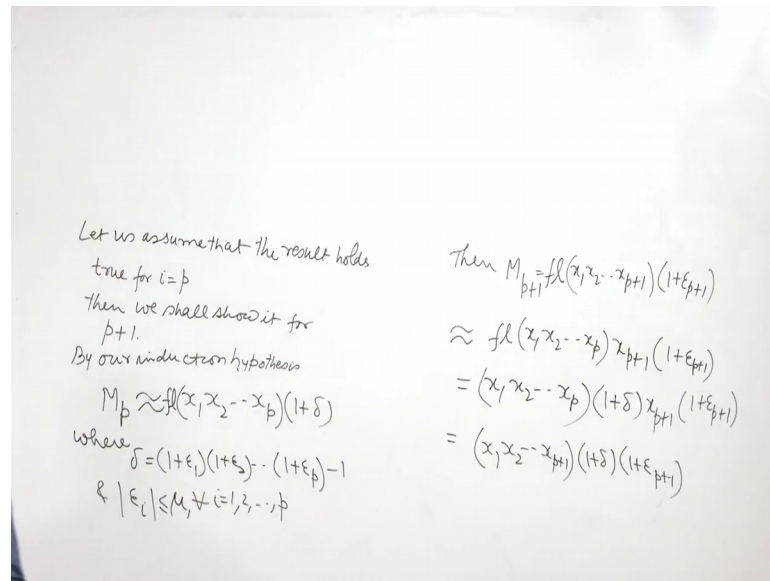 Let us assume that the result holds
true for i=p
Then we shall show it for
p+1.
By our induction hypothesis
M_p ≈ fl(x₁x₂--x_p)(1+δ)
where
δ=(1+ε₁)(1+ε₂)-·(1+ε_p)-1
& |ε_i|≤μ, ∀ i=1,2,--,p
Then M_{p+1}=fl(x₁x₂--x_{p+1})(1+ε_{p+1})
≈ fl(x₁x₂--x_p)x_{p+1}(1+ε_{p+1})
= (x₁x₂--x_p)(1+δ)x_{p+1}(1+ε_{p+1})
= (x₁x₂--x_{p+1})(1+δ)(1+ε_{p+1})